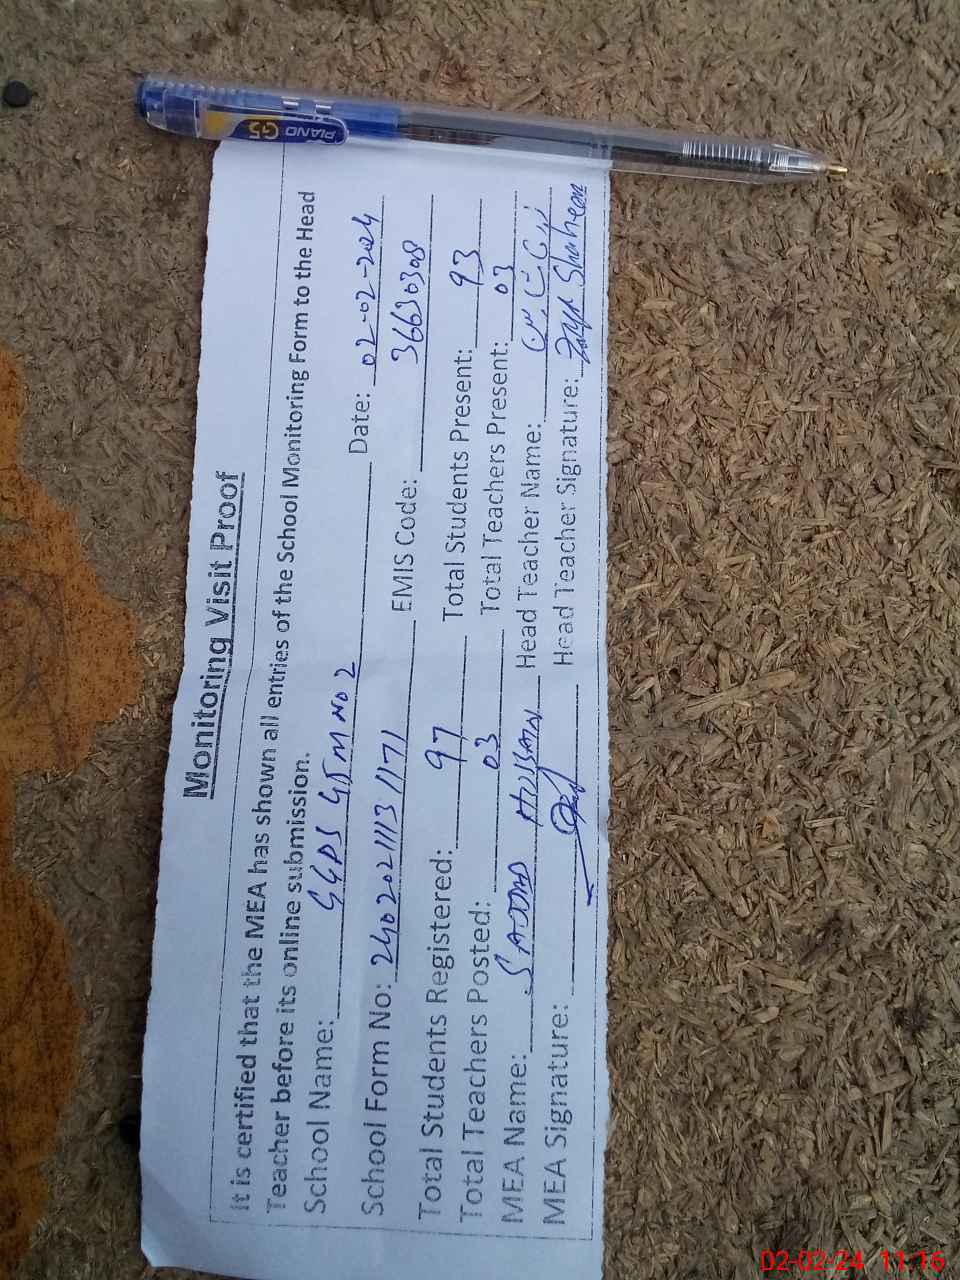 Monitoring Visit Proof
It is certified that the MEA has shown all entries of the School Monitoring Form to the Head
Teacher before its online submission.
School Name: GGPS GTM NO 2 Date: 02-02-2024
School Form No: 2402021113 1171 EMIS Code: 36630308
Total Students Registered: 97 Total Students Present: 93
Total Teachers Posted: 03 Total Teachers Present: 03
MEA Name: SAJJAD HUSSAIN Head Teacher Name:
MEA Signature: Head Teacher Signature: Shaheen
PIANO G5
02-02-24 11:16